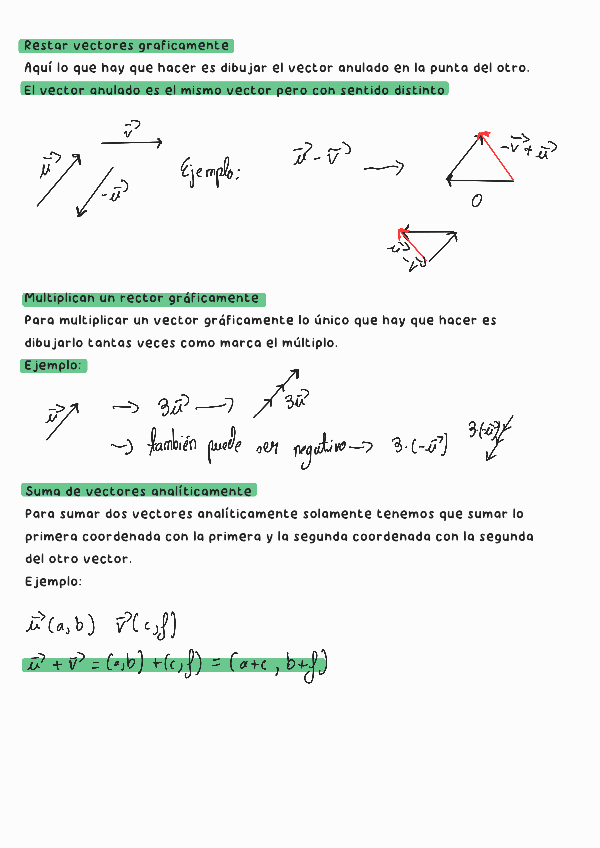 Restar vectores graficamente
Aquí lo que hay que hacer es dibujar el vector anulado en la punta del otro.
El vector anulado es el mismo vector pero con sentido distinto
v⃗
u⃗
-u⃗
Ejemplo:
u⃗ - v⃗ →
-v⃗ + u⃗
O
u⃗ - v⃗
Multiplican un rector gráficamente
Para multiplicar un vector gráficamente lo único que hay que hacer es
dibujarlo tantas veces como marca el múltiplo.
Ejemplo:
u⃗ → 3u⃗ → 3u⃗
→ también puede ser negativo → 3·(-u⃗) 3·(-u⃗)
Suma de vectores analíticamente
Para sumar dos vectores analíticamente solamente tenemos que sumar lo
primera coordenada con la primera y la segunda coordenada con la segunda
del otro vector.
Ejemplo:
u⃗ (a,b) v⃗ (c,f)
u⃗ + v⃗ = (a,b) + (c,f) = (a+c, b+f)